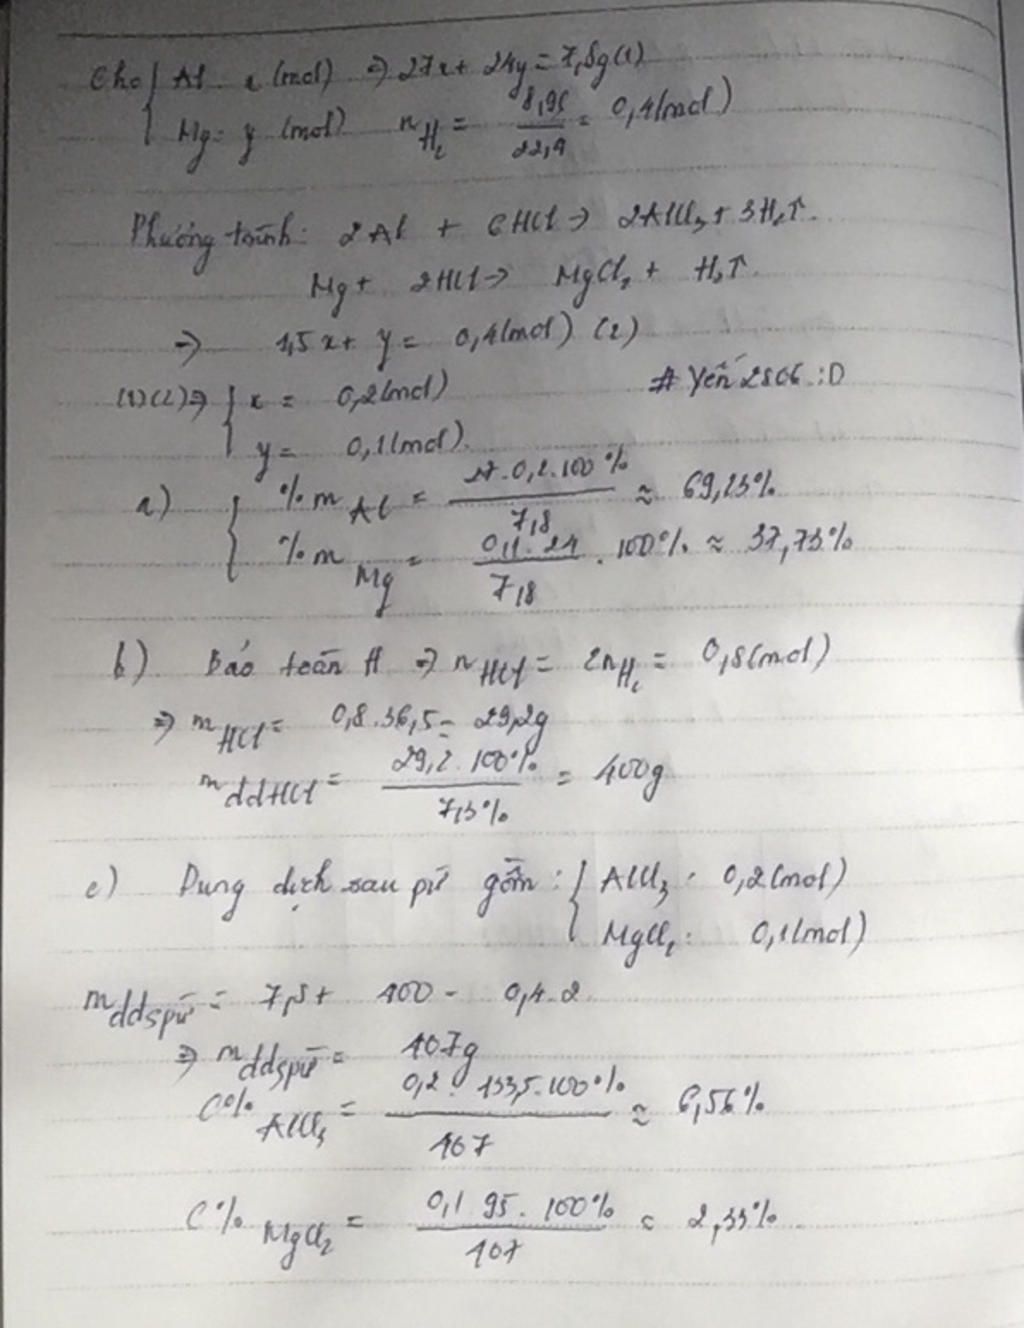 Cho { Al: x (mol) => 27x + 24y = 7,8g (1)
Mg: y (mol) nH₂ = 8,96/22,4 = 0,4(mol)
Phương trình: 2Al + 6HCl → 2AlCl₃ + 3H₂↑.
Mg + 2HCl → MgCl₂ + H₂↑.
→ 1,5x + y = 0,4(mol) (2)
(1)(2) => { x = 0,2(mol)
# Yến 2806 :D
y = 0,1(mol).
a) { %m Al = 27.0,2.100%/7,8 ≈ 69,23%
%m Mg = 0,1.24/7,8 . 100% ≈ 37,73%
b) Bảo toàn H => nHCl = 2nH₂ = 0,8(mol)
=> mHCl = 0,8.36,5 = 29,2g
mddHCl = 29,2.100%/7,3% = 400g
c) Dung dịch sau pứ gồm: { AlCl₃: 0,2(mol)
MgCl₂: 0,1(mol)
mddspứ = 7,8 + 400 - 0,4.2
=> mddspứ = 407g
C% AlCl₃ = 0,2.133,5.100%/407 ≈ 6,56%
C% MgCl₂ = 0,1.95.100%/407 = 2,33%